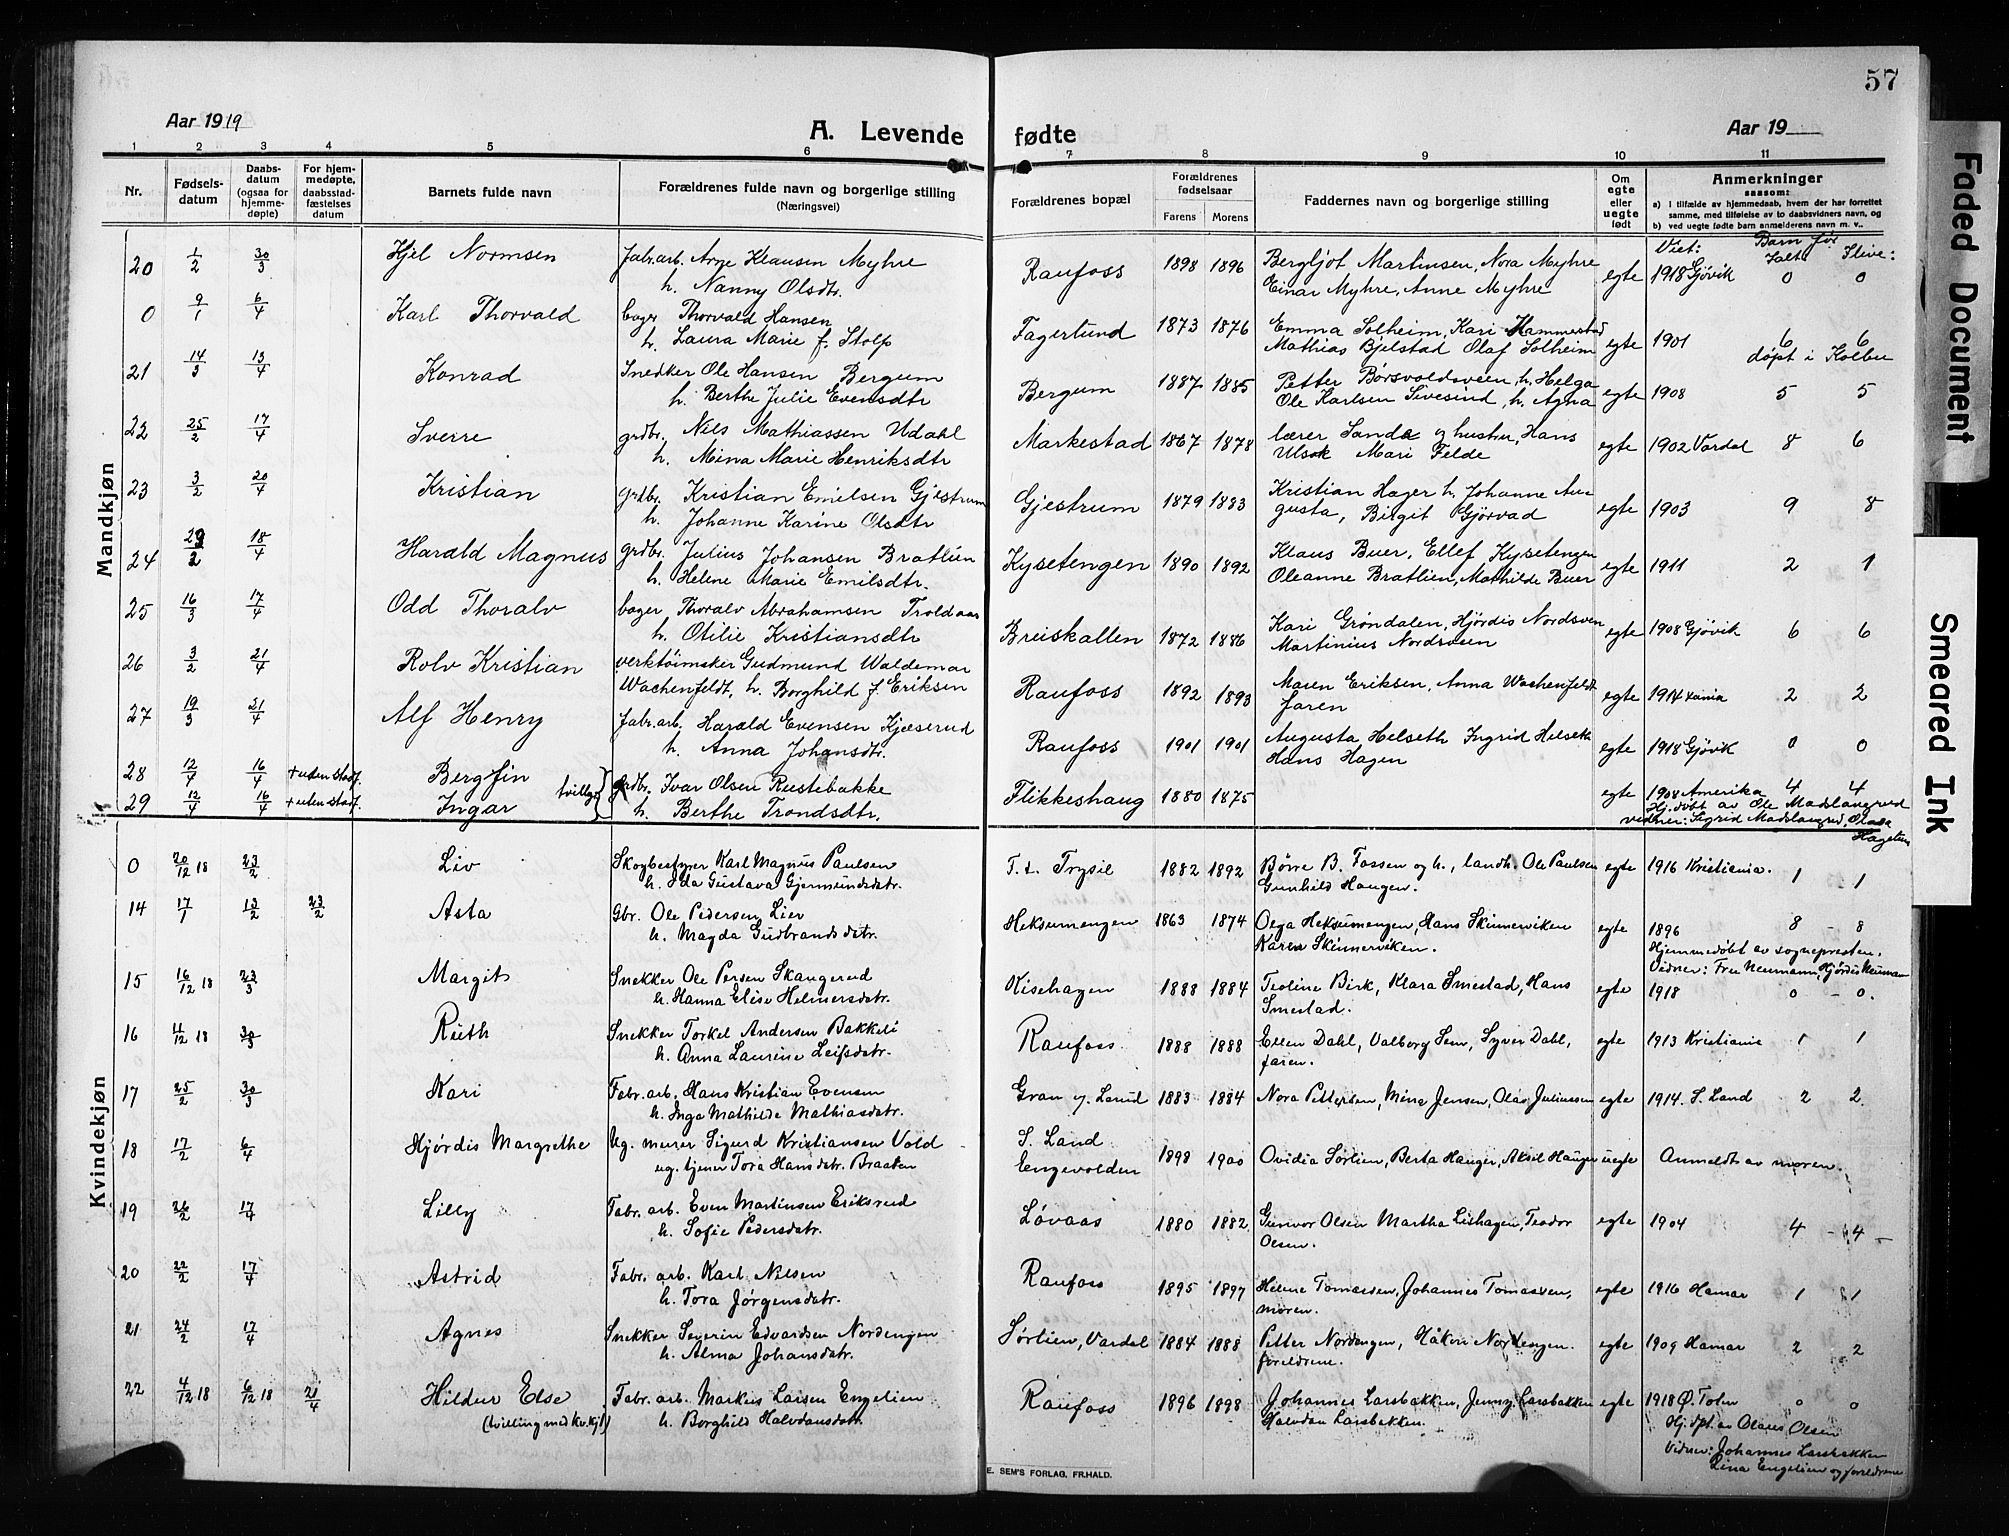 57
Aar 1919
A. Levende fødte
Aar 19
1 2 3 4 5 6 7 8 9 10 11
Nr. | Fødsels-datum | Daabs-datum (ogsaa for hjemme-døpte) | For hjem-medøpte, daabsstad-fæstelses datum | Barnets fulde navn | Forældrenes fulde navn og borgerlige stilling (Næringsvei) | Forældrenes bopæl | Forældrenes fødselsaar Farens Morens | Faddernes navn og borgerlige stilling | Om egte eller uegte født | Anmerkninger saasom: a) I tilfælde av hjemmedaab, hvem der har forrettet samme, med tilføielse av to daabsvidners navn, og b) ved uegte fødte barn anmelderens navn m. v..
Viet: Barn før Ialt: Ilive:
Mandkjøn
20 1/2 30/3 Kjel Normsen Fabr.arb. Arne Klausen Myhre Raufoss 1898 1896 Bergljot Martinsen, Nora Myhre egte 1918 Gjøvik 0 0
h. Nanny Olsdtr. Einar Myhre, Anne Myhre
0 9/1 6/4 Karl Thorvald bager Thorvald Hansen Fagerlund 1873 1876 Emma Solheim, Kari Hammerstad egte 1901 6 6
h. Laura Marie f. Stolp Mathias Bjelstad Olaf Solheim døpt i Kolbu
21 14/3 13/4 Konrad Snedker Ole Hansen Bergum Bergum 1887 1885 Petter Børsvoldsveen, h. Helga egte 1908 5 5
h. Berthe Julie Evensdtr Ole Karlsen Sivesind, h. Agna
22 25/2 17/4 Sverre grdbr. Nils Mathiassen Udahl Markestad 1867 1878 lærer Sande og hustru, Hans egte 1902 Vardal 8 6
h. Mina Marie Henriksdtr Ulsok Mari Felde
23 3/2 20/4 Kristian grdbr. Kristian Emielsen Gjestrum Gjestrum 1879 1883 Kristian Hager h. Johanne Au- egte 1903 9 8
h. Johanne Karine Olsdtr gusta, Birgit Gjørvad
24 18/4 Harald Magnus grdbr. Julius Johansen Bratlien Kysetengen 1890 1892 Klaus Buer, Ellef Kysetengen egte 1911 2 1
h. Helene Marie Emilsdtr. Oleanne Bratlien, Mathilde Buer
25 16/3 17/4 Odd Thoralv bager Thoralv Abrahamsen Troldaas Breiskallen 1872 1886 Kari Grøndalen, Hjørdis Nordsven egte 1908 Gjøvik 6 6
h. Otilie Kristiansdtr Martinius Nordsveen
26 3/2 21/4 Rolv Kristian verktøimaker Gudmund Waldemar Raufoss 1892 1893 Maren Eriksen, Anna Wachenfeldt egte 1914 Xania 2 2
Wachenfeldt, h. Borghild f. Eriksen faren
27 19/3 21/4 Alf Henry Fabr.arb. Harald Evensen Kjæserud Raufoss 1901 1901 Augusta Helseth Ingrid Helseth egte 1918 Gjøvik 0 0
h. Anna Johansdtr. Hans Hagen
28 12/4 16/4 + uden stadf. Bergfin tvillger grdbr. Ivar Olsen Rustebakke Flikkeshaug 1880 1875 egte 1908 Amerika 4 4
29 12/4 16/4 + uden stadf. Ingar h. Berthe Trondsdtr. Hj. døbt av Ole Madslangrud
vidner: Sigrid Madslangrud, Olava
Hagetun
Kvindekjøn
0 20/12 18 23/2 Liv Skogbestyrer Karl Magnus Paulsen T.t. Trysil 1882 1892 Børre B. Fossen og h., landh. Ole Paulsen egte 1916 Kristiania. 1 1
h. Ida Gustava Gjermundsdatr. Gunhild Haugen.
14 17/1 13/2 23/2 Asta Gbr. Ole Pedersen Lien Heksumengen 1863 1874 Olga Heksumengen, Hans Skinnerviken egte 1896 8 - 8
h. Magda Gudbrandsdatr. Karen Skinnerviken. Hjemmedøbt av sognepresten.
Vidner: Fru Neumann, Hjørdis Neuman
15 16/12 18 23/3 Margit Snekker Ole Persen Skangerud Kisehagen 1888 1884 Teoline Birk, Klara Smestad, Hans egte 1918 0 - 0.
h. Hanna Elise Helmersdatr. Smestad.
16 11/12 18 30/3 Ruth Snekker Torkel Andersen Bakkeli Raufoss 1888 1888 Ellen Dahl, Valborg Sem, Syver Dahl, egte 1913 Kristiania 1 1
h. Anna Laurine Leifsdatr. faren.
17 25/2 30/3 Kari Fabr. arb. Hans Kristian Evensen Gran y. Land 1883 1884 Nora Pettersen, Mina Jensen, Olav Juliussen egte 1914. S. Land 2 2.
h. Inga Mathilde Mathiasdatr.
18 17/2 6/4 Hjørdis Margrethe Ug. murer Sigurd Kristiansen Vold S. Land 1898 1900 Ovidia Sørlien, Berta Hauger, Aksel Hauger uegte Anmeldt av moren.
ug. tjener Tora Hansdatr. Braaten Engevolden
19 26/2 17/4 Lilly Fabr. arb. Even Martinsen Eriksrud Løvaas 1880 1882 Gunvor Olsen Martha Lishagen, Teodor egte 1904 4 - 4 -
h. Sofie Pedersdatr. Olsen.
20 22/2 17/4 Astrid Fabr. arb. Karl Nilsen Raufoss 1895 1897 Helene Tomassen, Johannes Tomassen, egte 1916 Hamar 1 1
h. Tora Jørgensdatr. moren.
21 24/2 17/4 Agnes Snekker Severin Edvardsen Nordengen Sørlien, Vardal 1884 1888 Petter Nordengen, Håkon Nordengen. egte 1909 Hamar 2 2
h. Alma Johansdatr. foreldrene.
22 4/12 18 6/12 18 21/4 Hildur Else Fabr. arb. Markus Larsen Engelien Raufoss 1896 1898 Johannes Larsbakken, Jenny Larsbakken egte 1918 Ø. Toten 0 0
(tvilling med kv.kj.) h. Borghild Halvdansdatr. Halvdan Larsbakken. Hj. døpt. av Olaus Olsen
Vidner: Johannes Larsbakken
Lina Engelien og foreldrene
E. SEM'S FORLAG, FR.HALD.
Faded Document
Smeared Ink